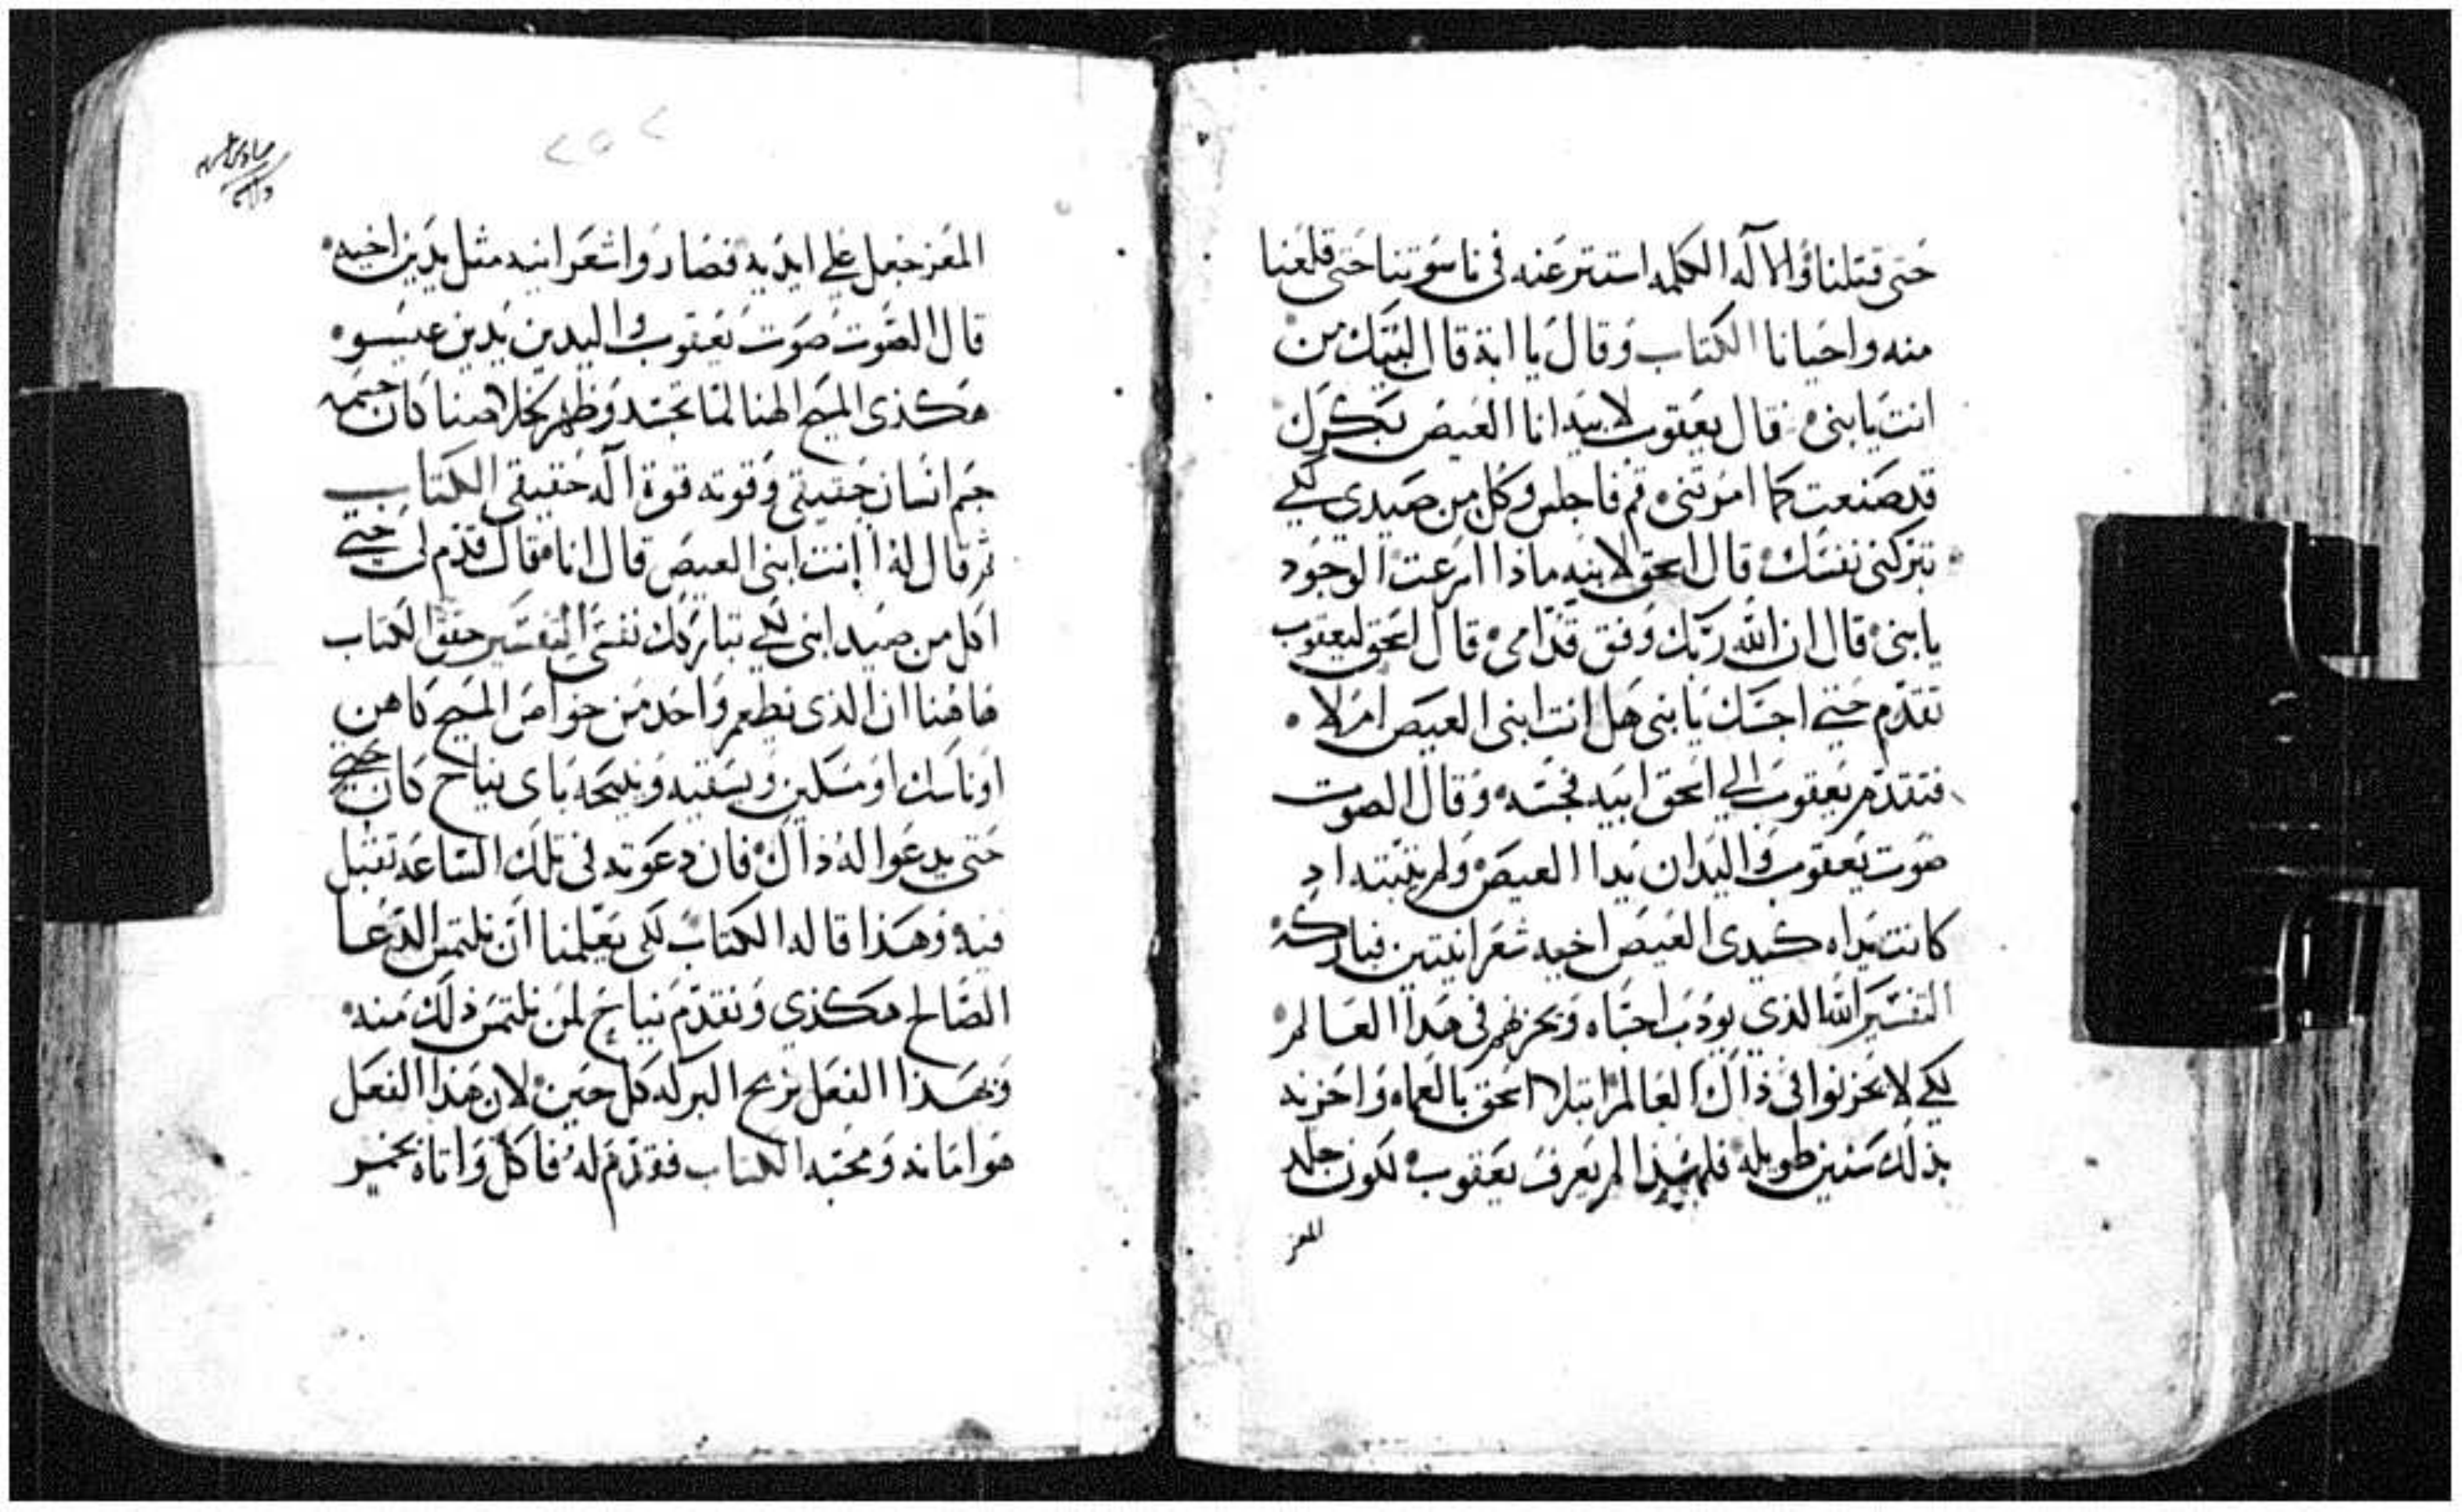 حتى قتلنا والاله الكلمه استتر عنه فى ناسوتيتنا حتى قلعنا
منه واحيانا الكتاب وقال يا ابة قال لبيك من
انت يا بنى قال يعقوب لابيه انا العيص بكرك
قد صنعت كما امرتنى قم فاجلس وكل من صيدي لكي
تبركنى نفسك قال اسحق لابنه ماذا اسرعت الوجود
يا بنى قال ان الله ربك وفق قدامى قال اسحق ليعقوب
تقدم حتي اجسك يا بنى هل انت ابنى العيص ام لا
فتقدم يعقوب الي اسحق ابيه فجسه وقال الصوت
صوت يعقوب واليدان يدا العيص ولم يثبته اد
كانت يداه كيدى العيص اخيه شعرانيتين فباركه
التفسير الله الذي يودب احباه ويحزنهم فى هذا العالم
لكي لا يحزنوا فى ذاك العالم ابتلا اسحق بالعماه واحزنه
بذلك سنين طويله فلهذا لم يعرف يعقوب لكون جلد
المعز
٢٥٢
المعز جعل على ايديه فصاروا شعرانيه مثل يدين اخيه
قال الصوت صوت يعقوب واليدين يدين عيسو
هكذى المسيح الهنا لما تجسد وظهر لخلاصنا كان جسمه
جسم انسان حقيقي وقوته قوة اله حقيقي الكتاب
ثم قال له اانت ابنى العيص قال انا فقال قدم لى حتي
اكل من صيد ابنى لكي تباركك نفسى التفسير حقق الكتاب
هاهنا ان الذى يطعم واحد من خواص المسيح كاهن
او ناسك او مسكين ويسقيه وينيحه باى نياح كان
حتى يدعوا له ذاك فان دعوته فى تلك الساعه تقبل
فيه وهذا قاله الكتاب لكى يعلمنا ان نلتمس الدعا
الصالح هكذي ونقدم نياح لمن نلتمس ذلك منه
وبهذا الفعل نربح البركه كل حين لان هذا الفعل
هو امانه ومحبه الكتاب فقدم له فاكل واتاه بخمير